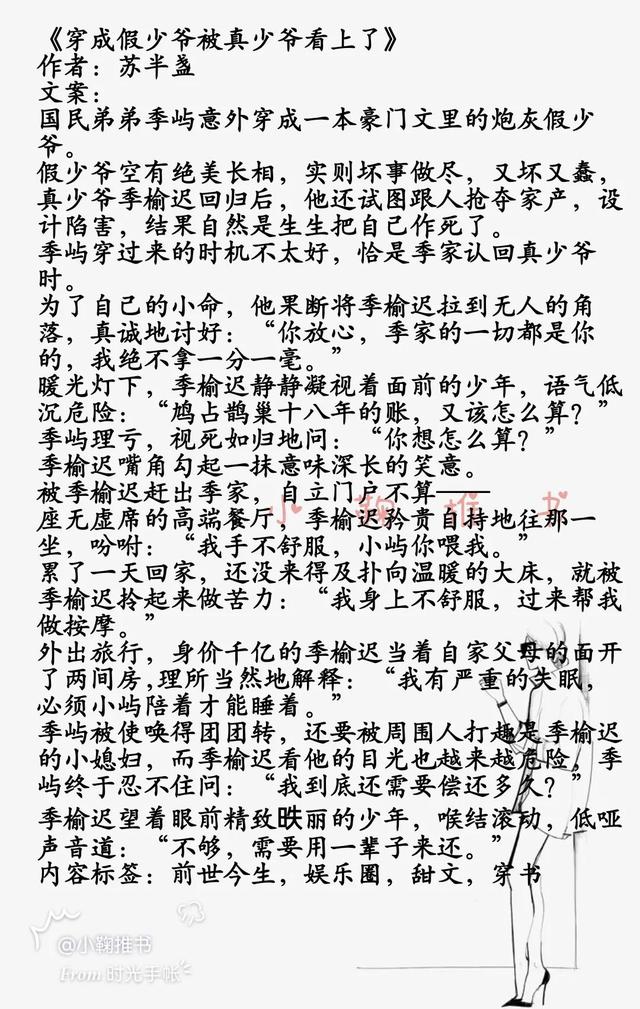 《穿成假少爷被真少爷看上了》
作者：苏半盏
文案：
国民弟弟季屿意外穿成一本豪门文里的炮灰假少
爷。
假少爷空有绝美长相，实则坏事做尽，又坏又蠢，
真少爷季榆迟回归后，他还试图跟人抢夺家产，设
计陷害，结果自然是生生把自己作死了。
季屿穿过来的时机不太好，恰是季家认回真少爷
时。
为了自己的小命，他果断将季榆迟拉到无人的角
落，真诚地讨好：“你放心，季家的一切都是你
的，我绝不拿一分一毫。”
暖光灯下，季榆迟静静凝视着面前的少年，语气低
沉危险：“鸠占鹊巢十八年的账，又该怎么算？”
季屿理亏，视死如归地问：“你想怎么算？”
季榆迟嘴角勾起一抹意味深长的笑意。
被季榆迟赶出季家，自立门户不算——
座无虚席的高端餐厅，季榆迟矜贵自持地往那一
坐，吩咐：“我手不舒服，小屿你喂我。”
累了一天回家，还没来得及扑向温暖的大床，就被
季榆迟拎起来做苦力：“我身上不舒服，过来帮我
做按摩。”
外出旅行，身价千亿的季榆迟当着自家父母的面开
了两间房,理所当然地解释：“我有严重的失眠，
必须小屿陪着才能睡着。”
季屿被使唤得团团转，还要被周围人打趣是季榆迟
的小媳妇，而季榆迟看他的目光也越来越危险，季
屿终于忍不住问：“我到底还需要偿还多久？”
季榆迟望着眼前精致昳丽的少年，喉结滚动，低哑
声音道：“不够，需要用一辈子来还。”
内容标签：前世今生，娱乐圈，甜文，穿书
小鞠推书
@小鞠推书
From 时光手帐